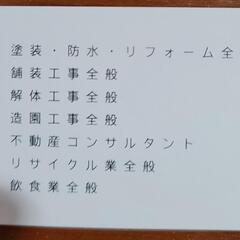 塗装・防水・リフォーム全
舗装工事全般
解体工事全般
造園工事全般
不動産コンサルタント
リサイクル業全般
飲食業全般